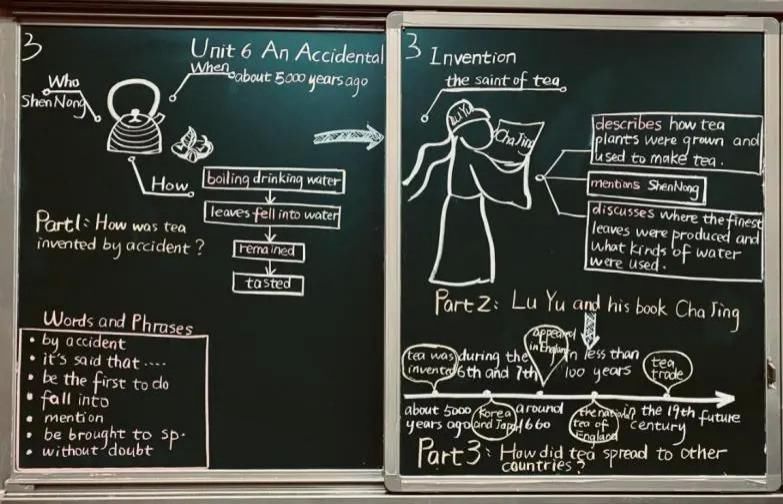 3
Unit 6 An Accidental
Who
Shen Nong
When
about 5000 years ago
How
boiling drinking water
leaves fell into water
remained
tasted
Part1: How was tea
invented by accident?
Words and Phrases
• by accident
• it's said that ....
• be the first to do
• fall into
• mention
• be brought to sp.
• without doubt
3
Invention
the saint of tea
Lu Yu
Cha Jing
describes how tea
plants were grown and
used to make tea.
mentions ShenNong
discusses where the finest
leaves were produced and
what kinds of water
were used.
Part2: Lu Yu and his book Cha Jing
tea was
invented
during the
6th and 7th
appeared
in England
in less than
100 years
tea
trade
about 5000
years ago
Korea
and Japan
around
1660
the nation
tea of
England
in the 19th
century
future
Part3: How did tea spread to other
countries?